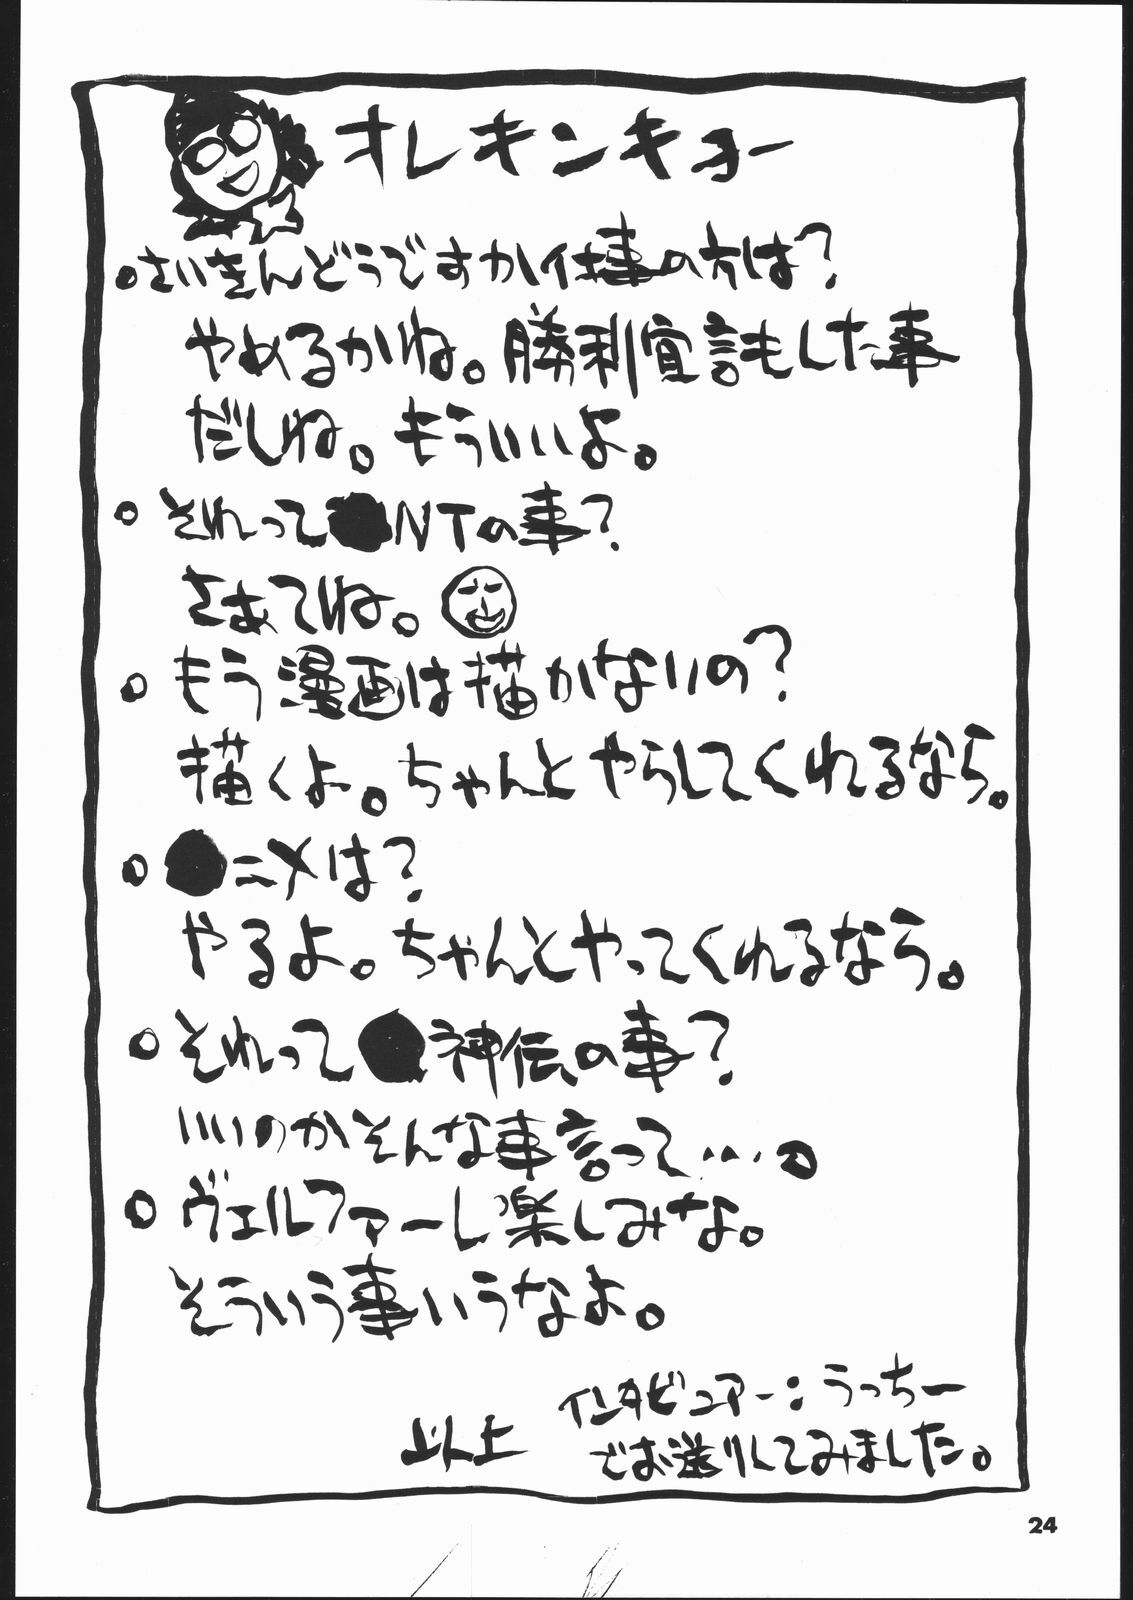 オレキンキョー
○さいきんどうですか仕事の方は?
やめるかね。勝利宣言もした事
だしね。もういいよ。
○それって●NTの事?
さぁてね。
○もう漫画は描かないの?
描くよ。ちゃんとやらしてくれるなら。
○●ニメは?
やるよ。ちゃんとやってくれるなら。
○それって●神伝の事?
いいのかそんな事言って…。
○ヴェルファーレ楽しみな。
そういう事いうなよ。
インタビュアー:うっちー
以上 でお送りしてみました。
24